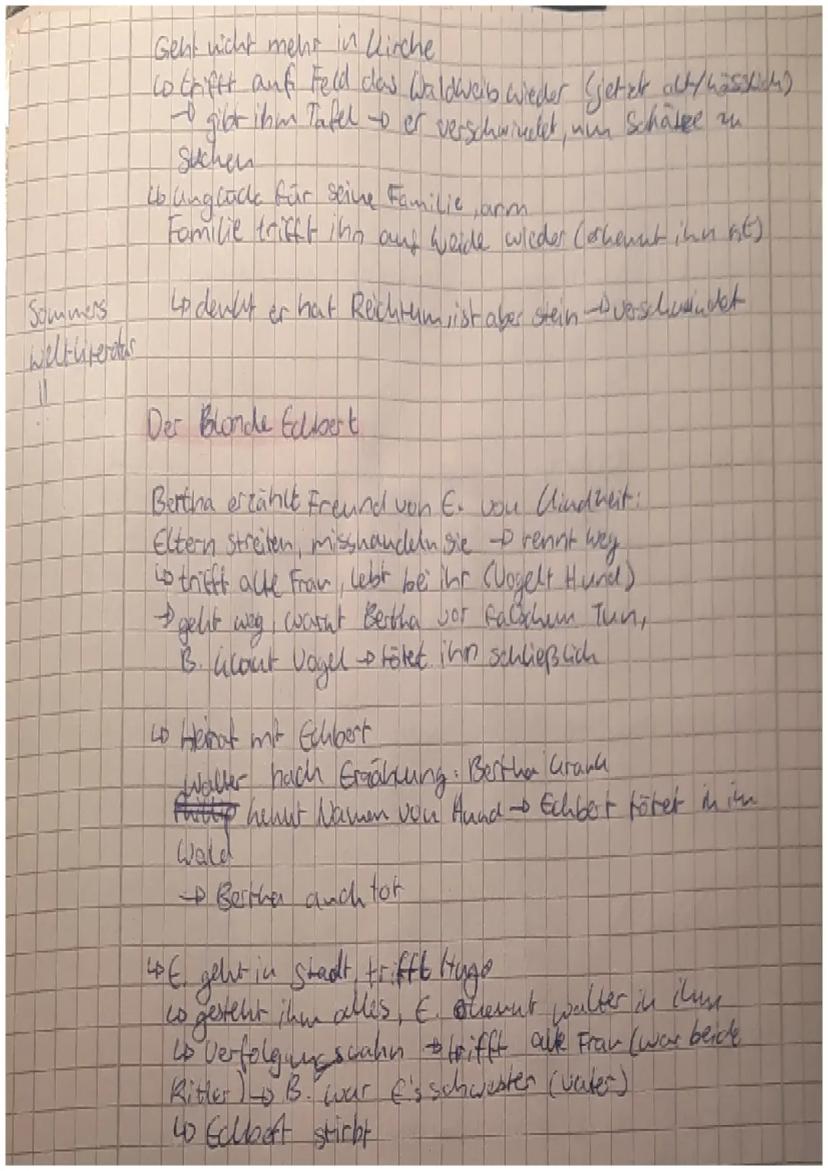 Geht nicht mehr in Kirche
↳ trifft auf Feld das Waldweib wieder (jetzt alt/hässlich)
→ gibt ihm Tafel → er verschwindet, um Schätze zu
suchen
↳ Unglück für seine Familie, arm
Familie trifft ihn auf Weide wieder (erkennt ihn nt)
↳ denkt er hat Reichtum, ist aber Stein → verschwindet
Sommers
Weltliteratur
||
Der Blonde Eckbert
Bertha erzählt Freund von E. von Kindheit:
Eltern streiten, misshandeln sie → rennt weg
↳ trifft alte Frau, lebt bei ihr (Vogel+ Hund)
→ geht weg, warnt Bertha vor falschem Tun,
B. klaut Vogel → tötet ihn schließlich
↳ Heirat mit Eckbert
Walter nach Erzählung: Bertha krank
kennt Namen von Hund → Eckbert tötet in im
Wald
→ Bertha auch tot
↳ E. geht in Stadt, trifft Hugo
↳ gesteht ihm alles, E. erkennt Walter in ihm
↳ Verfolgungswahn → trifft alte Frau (war beide
Ritter) → B. war E's schwester (Vater)
↳ Eckbert stirbt